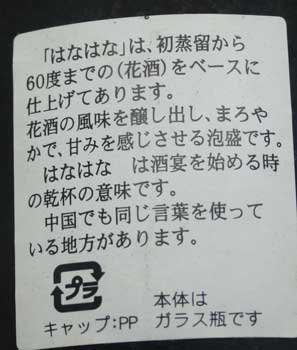 「はなはな」は、初蒸留から
60度までの(花酒)をベースに
仕上げてあります。
花酒の風味を醸し出し、まろや
かで、甘みを感じさせる泡盛です。
はなはな　は酒宴を始める時
の乾杯の意味です。
中国でも同じ言葉を使って
いる地方があります。
プラ
本体は
キャップ:PP ガラス瓶です